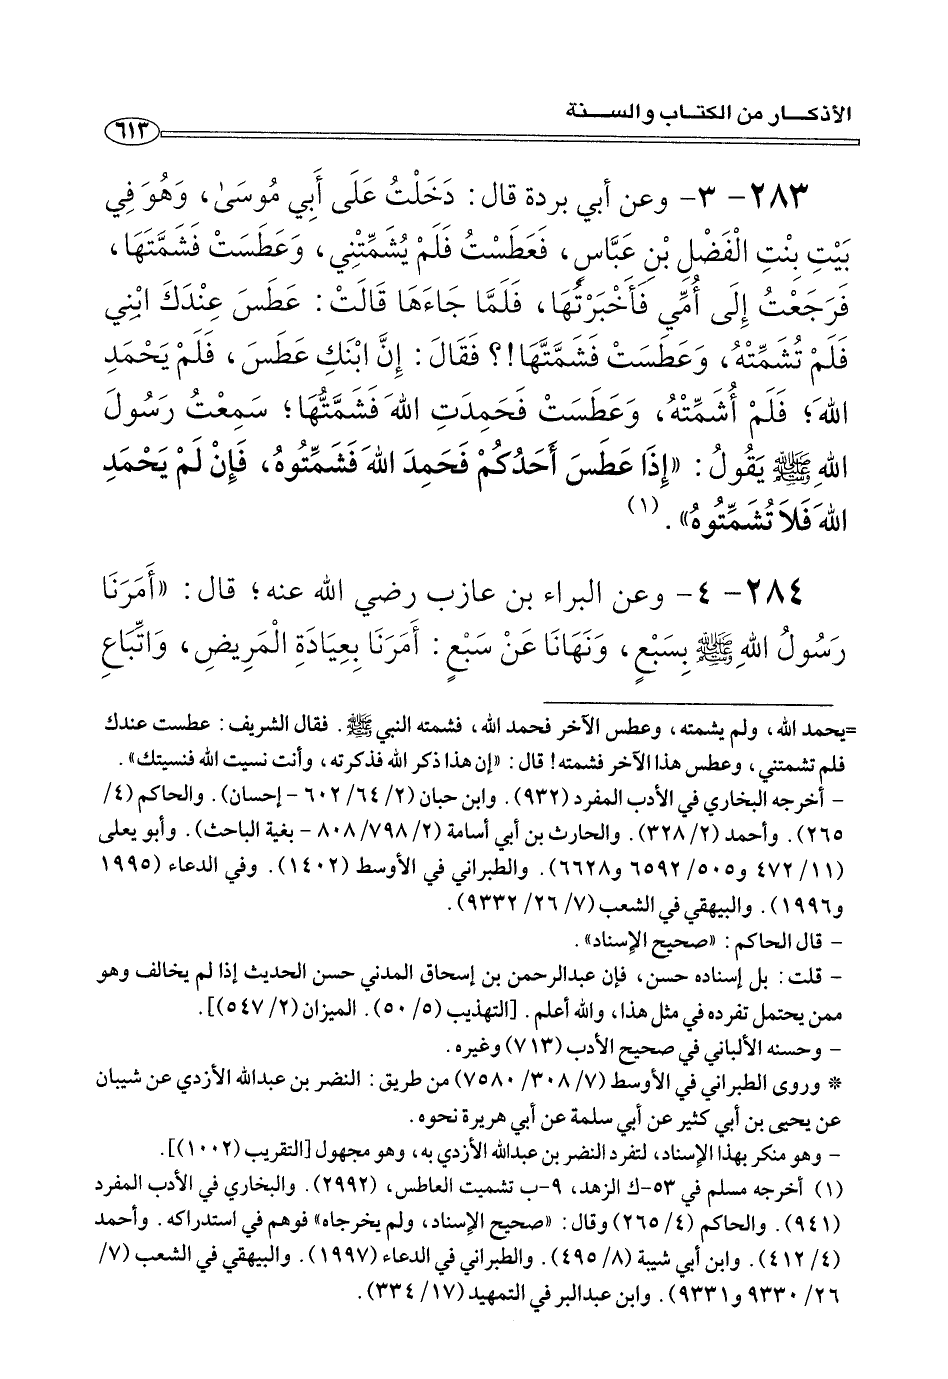 الأذكــار من الكتـاب والســنة
٦١٣
٢٨٣- ٣- وعن أبي بردة قال: دَخَلْتُ عَلَى أَبِي مُوسَىٰ، وَهُوَ فِي
بَيْتِ بِنْتِ الْفَضْلِ بْنِ عَبَّاسٍ، فَعَطَسْتُ فَلَمْ يُشَمِّتْنِي، وَعَطَسَتْ فَشَمَّتَهَا،
فَرَجَعْتُ إِلَى أُمِّي فَأَخْبَرْتُهَا، فَلَمَّا جَاءَهَا قَالَتْ: عَطَسَ عِنْدَكَ ابْنِي
فَلَمْ تُشَمِّتْهُ، وَعَطَسَتْ فَشَمَّتَّهَا!؟ فَقَالَ: إِنَّ ابْنَكِ عَطَسَ، فَلَمْ يَحْمَدِ
اللهَ؛ فَلَمْ أُشَمِّتْهُ، وَعَطَسَتْ فَحَمِدَتِ اللهَ فَشَمَّتُّهَا؛ سَمِعْتُ رَسُولَ
اللهِ ﷺ يَقُولُ: «إِذَا عَطَسَ أَحَدُكُمْ فَحَمِدَ اللهَ فَشَمِّتُوهُ، فَإِنْ لَمْ يَحْمَدِ
اللهَ فَلاَ تُشَمِّتُوهُ». (١)
٢٨٤- ٤- وعن البراء بن عازب رضي الله عنه؛ قال: «أَمَرَنَا
رَسُولُ اللهِ ﷺ بِسَبْعٍ، وَنَهَانَا عَنْ سَبْعٍ: أَمَرَنَا بِعِيَادَةِ الْمَرِيضِ، وَاتِّبَاعِ
=يحمد الله، ولم يشمته، وعطس الآخر فحمد الله، فشمته النبي ﷺ. فقال الشريف: عطست عندك
فلم تشمتني، وعطس هذا الآخر فشمته! قال: «إن هذا ذكر الله فذكرته، وأنت نسيت الله فنسيتك».
- أخرجه البخاري في الأدب المفرد (٩٣٢). وابن حبان (٢/ ٦٤/ ٦٠٢ - إحسان). والحاكم (٤/
٢٦٥). وأحمد (٢/ ٣٢٨). والحارث بن أبي أسامة (٢/ ٧٩٨/ ٨٠٨ - بغية الباحث). وأبو يعلى
(١١/ ٤٧٢ و٥٠٥/ ٦٥٩٢ و٦٦٢٨). والطبراني في الأوسط (١٤٠٢). وفي الدعاء (١٩٩٥
و١٩٩٦). والبيهقي في الشعب (٧/ ٢٦/ ٩٣٣٢).
- قال الحاكم: «صحيح الإسناد».
- قلت: بل إسناده حسن، فإن عبدالرحمن بن إسحاق المدني حسن الحديث إذا لم يخالف وهو
ممن يحتمل تفرده في مثل هذا، والله أعلم. [التهذيب (٥/ ٥٠). الميزان (٢/ ٥٤٧)].
- وحسنه الألباني في صحيح الأدب (٧١٣) وغيره.
* وروى الطبراني في الأوسط (٧/ ٣٠٨/ ٧٥٨٠) من طريق: النضر بن عبدالله الأزدي عن شيبان
عن يحيى بن أبي كثير عن أبي سلمة عن أبي هريرة نحوه.
- وهو منكر بهذا الإسناد، لتفرد النضر بن عبدالله الأزدي به، وهو مجهول [التقريب (١٠٠٢)].
(١) أخرجه مسلم في ٥٣-ك الزهد، ٩-ب تشميت العاطس، (٢٩٩٢). والبخاري في الأدب المفرد
(٩٤١). والحاكم (٤/ ٢٦٥) وقال: «صحيح الإسناد، ولم يخرجاه» فوهم في استدراكه. وأحمد
(٤/ ٤١٢). وابن أبي شيبة (٨/ ٤٩٥). والطبراني في الدعاء (١٩٩٧). والبيهقي في الشعب (٧/
٢٦/ ٩٣٣٠ و٩٣٣١). وابن عبدالبر في التمهيد (١٧/ ٣٣٤).